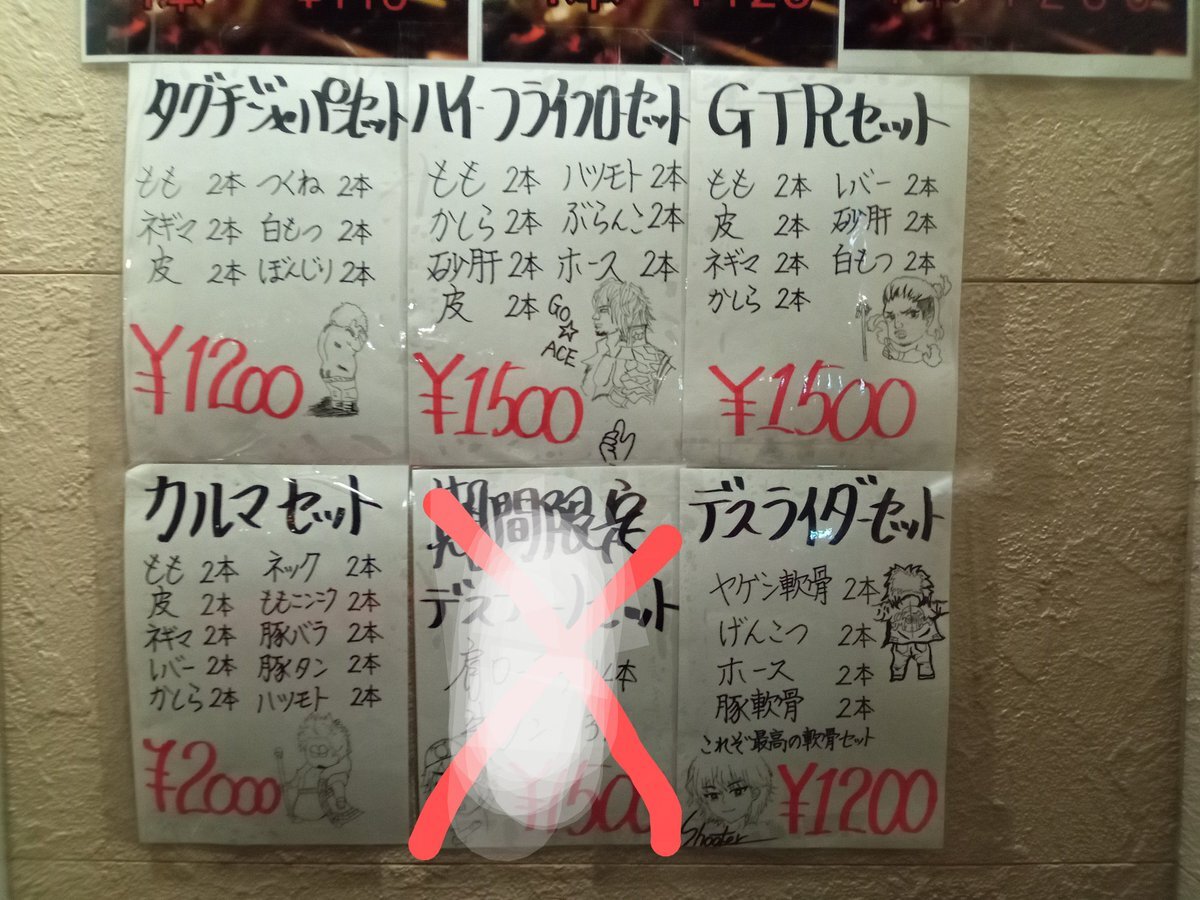 タグチジャパンセット
もも 2本 つくね 2本
ネギマ 2本 白もつ 2本
皮 2本 ぼんじり 2本
¥1200
ハイフライフローセット
もも 2本 ハツモト 2本
かしら 2本 ぶらんこ 2本
砂肝 2本 ホース 2本
皮 2本
GO
☆
ACE
¥1500
GTRセット
もも 2本 レバー 2本
皮 2本 砂肝 2本
ネギマ 2本 白もつ 2本
かしら 2本
¥1500
カルマセット
もも 2本 ネック 2本
皮 2本 ももニンニク 2本
ネギマ 2本 豚バラ 2本
レバー 2本 豚タン 2本
かしら 2本 ハツモト 2本
¥2000
期間限定
セット
¥1500
デスライダーセット
ヤゲン軟骨 2本
げんこつ 2本
ホース 2本
豚軟骨 2本
これぞ最高の軟骨セット
¥1200
Shooter